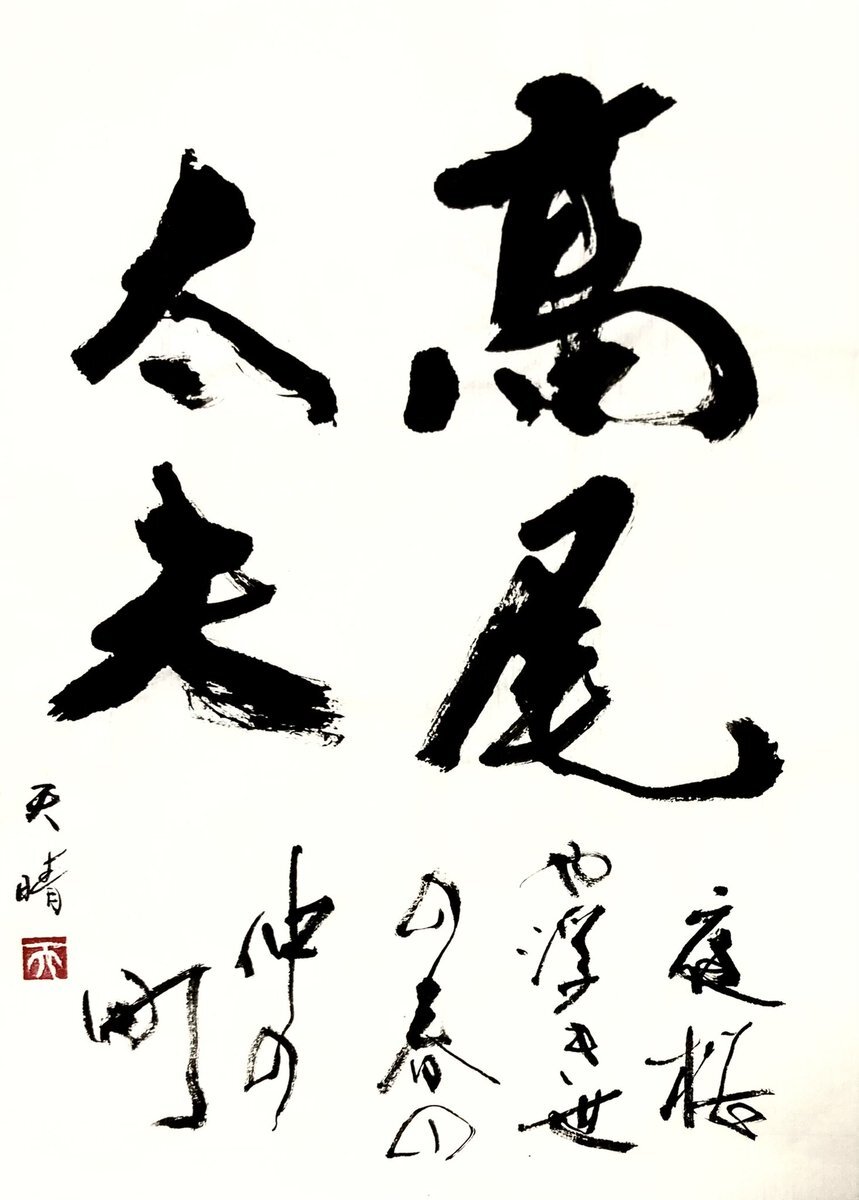 高尾
太夫
庭桜
や浮き世
の春の
仲の
町
天晴
天